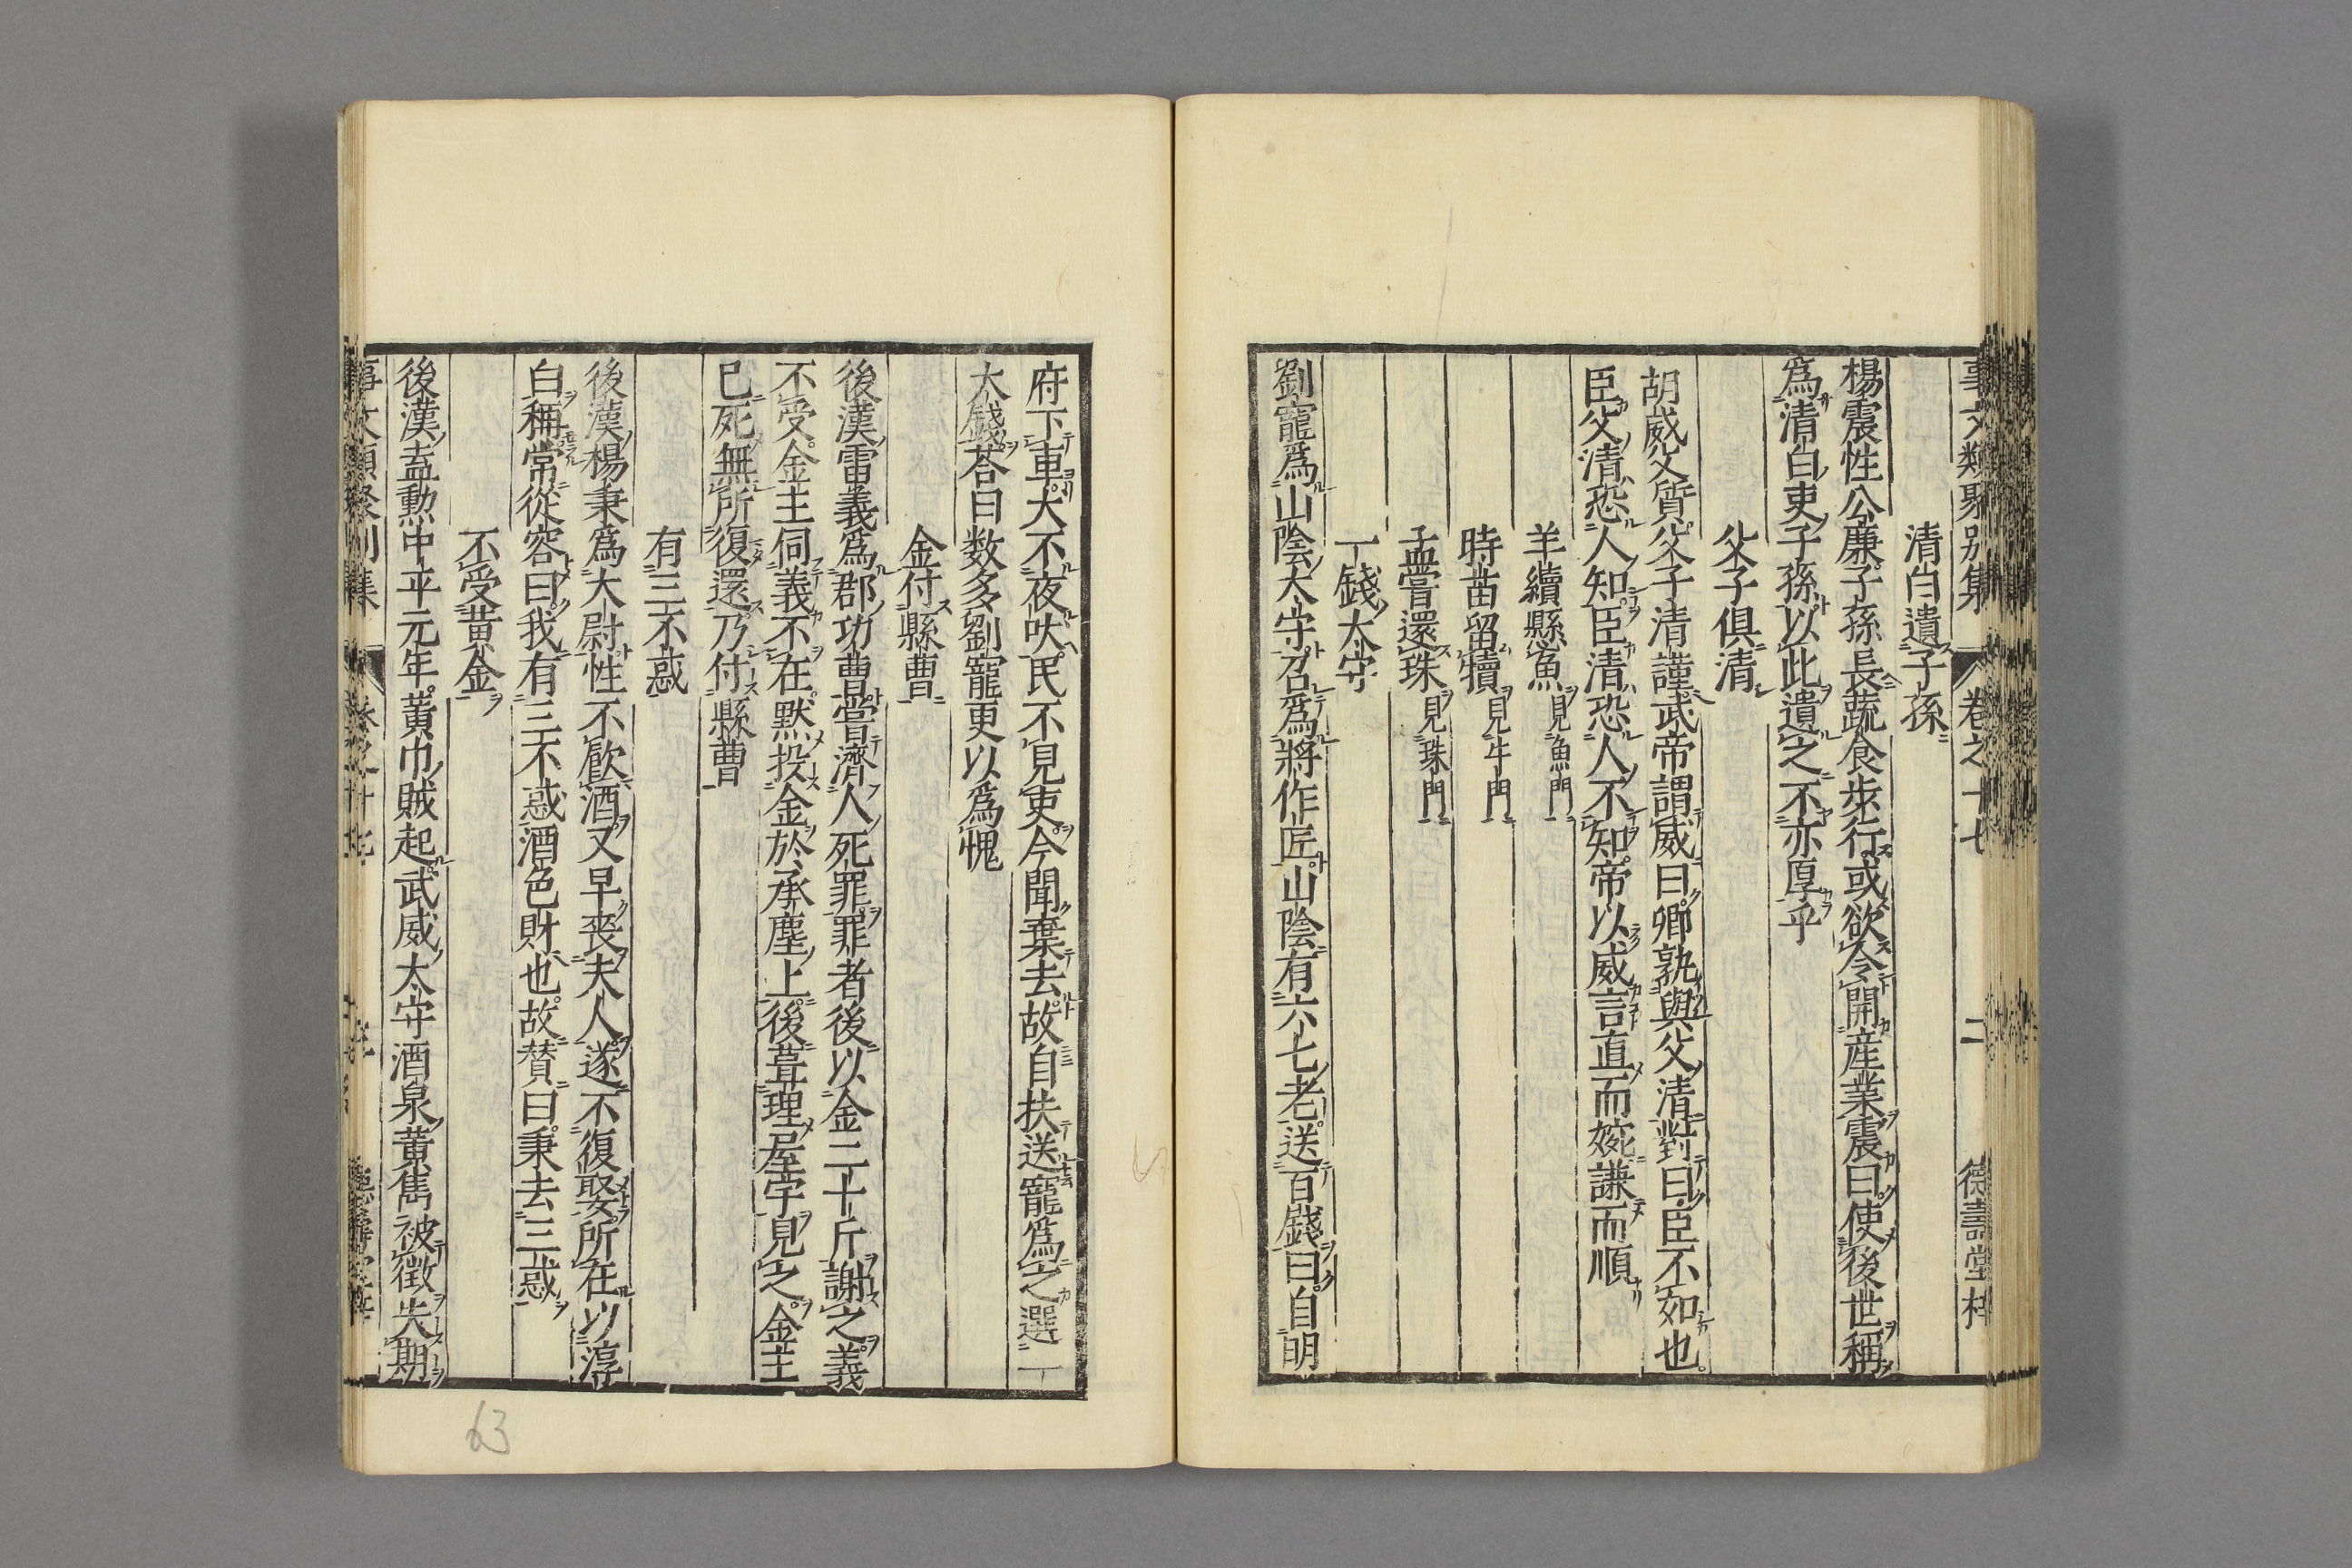 事文類聚別集 卷之十七 二 德壽堂梓
清白遺子孫
楊震性公廉子孫長蔬食步行或欲令開産業震曰使後世稱
爲清白吏子孫以此遺之不亦厚乎
父子俱清
胡威父質父子清謹武帝謂威曰卿孰與父清對曰臣不如也
臣父清恐人知臣清恐人不知帝以威言直而婉謙而順
羊續懸魚見魚門
時苗留犢見牛門
孟嘗還珠見珠門
一錢太守
劉寵爲山陰太守召爲將作匠山陰有六七老送百錢曰自明
府下車犬不夜吠民不見吏今聞棄去故自扶送寵爲之選一
大錢荅曰数多劉寵更以爲愧
金付縣曹
後漢雷義爲郡功曹嘗濟人死罪罪者後以金二十斤謝之義
不受金主伺義不在默投金於承塵上後葺理屋宇見之金主
已死無所復還乃付縣曹
有三不惑
後漢楊秉爲大尉性不飮酒又早喪夫人遂不復娶所在以淳
白稱常從容曰我有三不惑酒色財也故賛曰秉去三惑
不受黃金
後漢盍勲中平元年黃巾賊起武威太守酒泉黃雋被徵失期
事文類聚別集 卷之十七
63